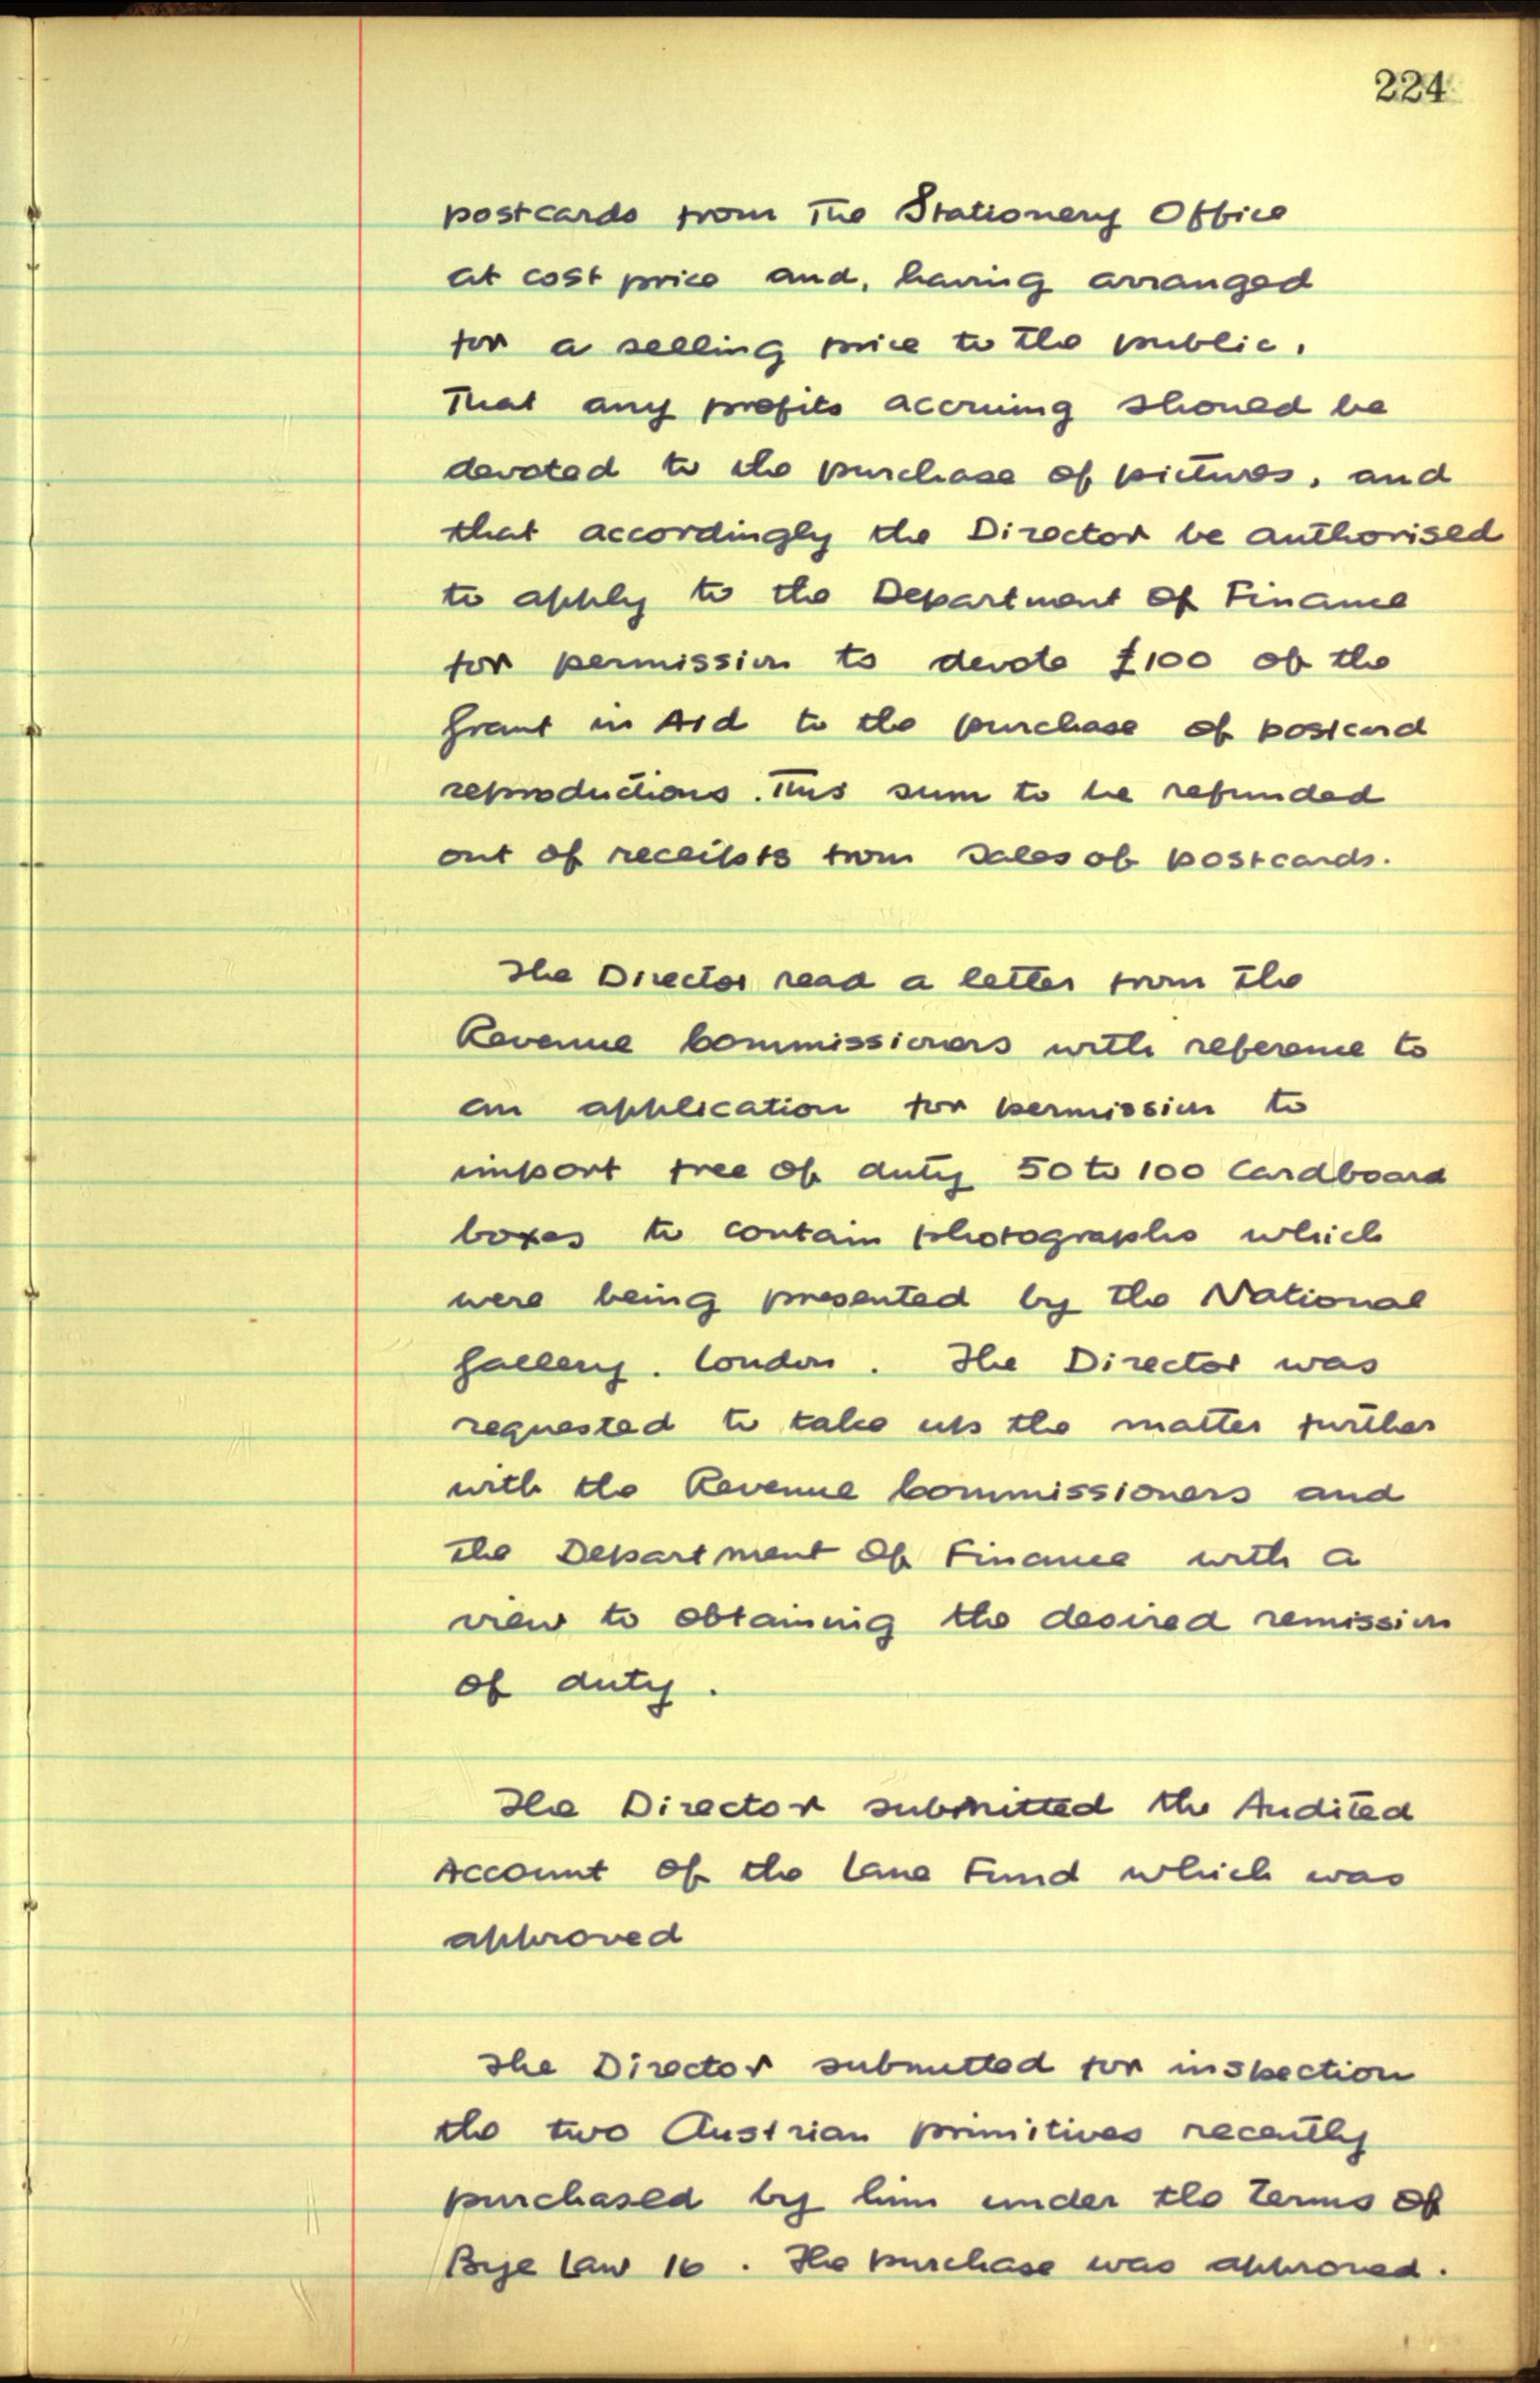 224
postcards from the Stationery Office
at cost price and, having arranged
for a selling price to the public,
that any profits accruing should be
devoted to the purchase of pictures, and
that accordingly the Director be authorised
to apply to the Department of Finance
for permission to devote £100 of the
Grant in Aid to the purchase of postcard
reproductions. This sum to be refunded
out of receipts from sales of postcards.
The Director read a letter from the
Revenue Commissioners with reference to
an application for permission to
import free of duty 50 to 100 Cardboard
boxes to contain photographs which
were being presented by the National
Gallery. London. The Director was
requested to take up the matter further
with the Revenue Commissioners and
the Department of Finance with a
view to obtaining the desired remission
of duty.
The Director submitted the Audited
Account of the Lane Fund which was
approved
The Director submitted for inspection
the two Austrian primitives recently
purchased by him under the terms of
Bye Law 16. The purchase was approved.